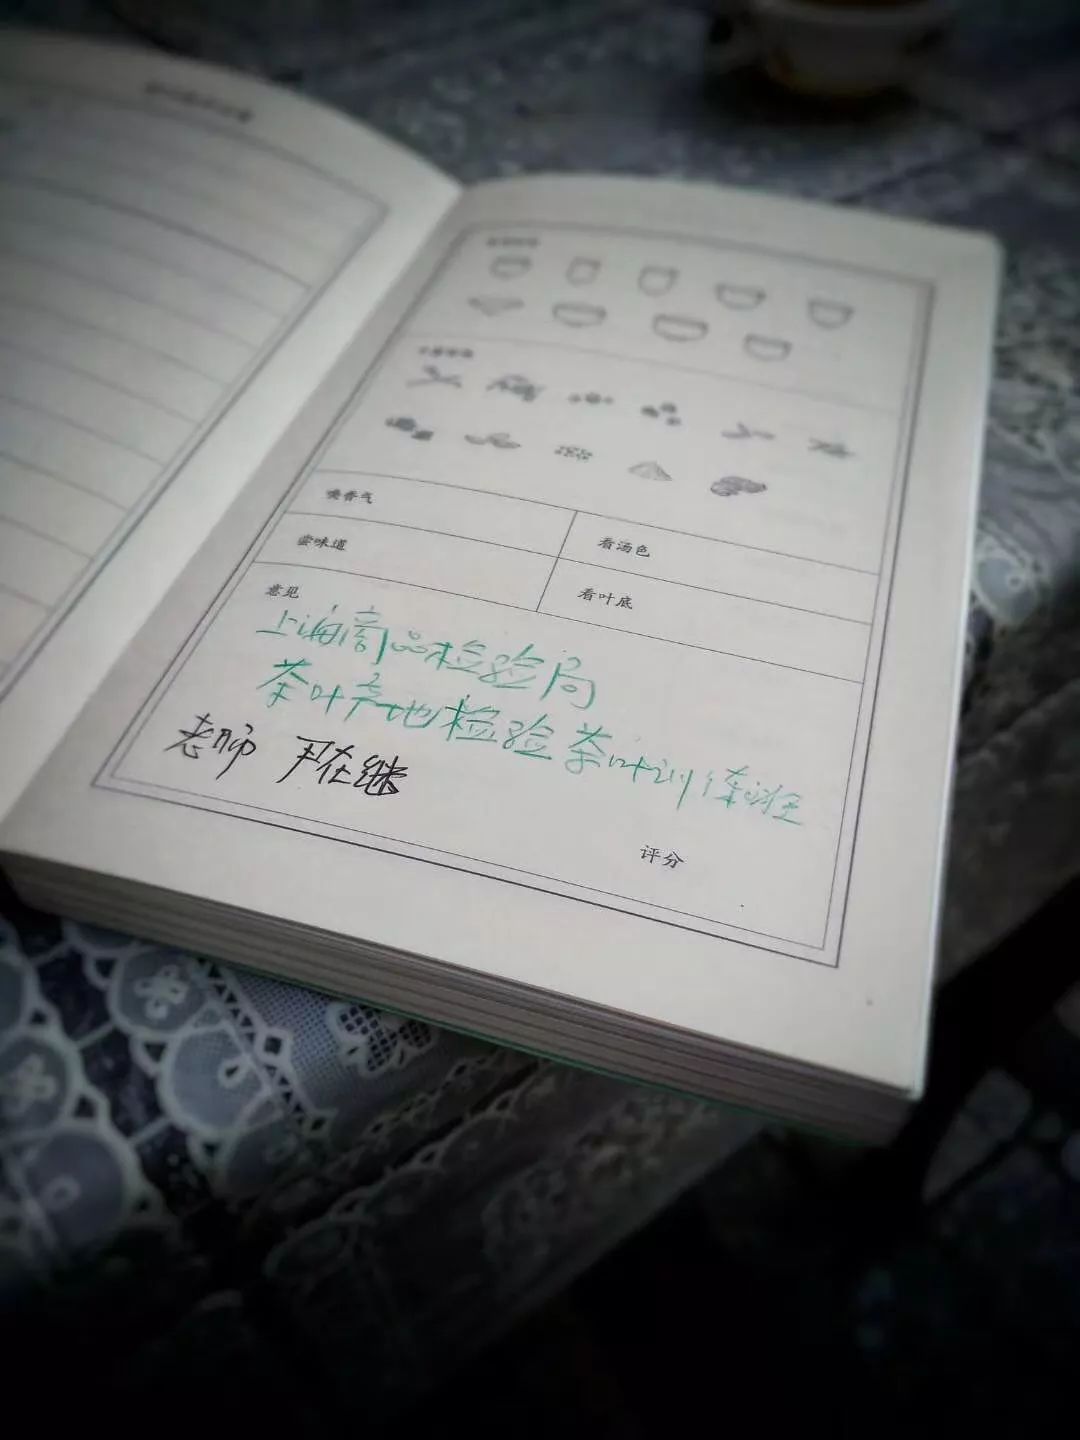 嗅香气
看汤色
尝味道
看叶底
意见
上海商品检验局
茶叶产地检验茶叶训练班
老师 尹在继
评分